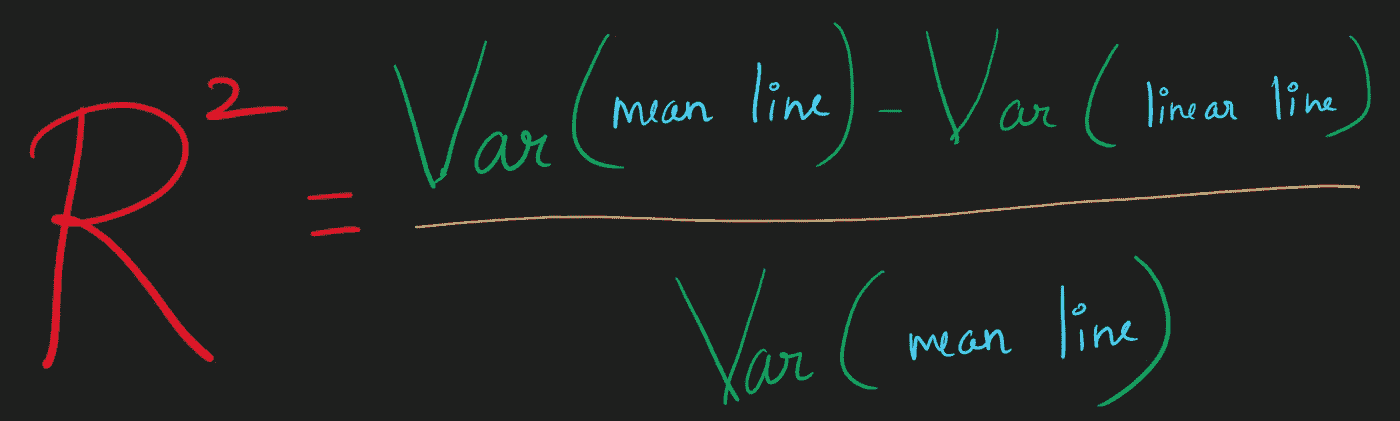 R² = Var (mean line) - Var (linear line)
Var (mean line)